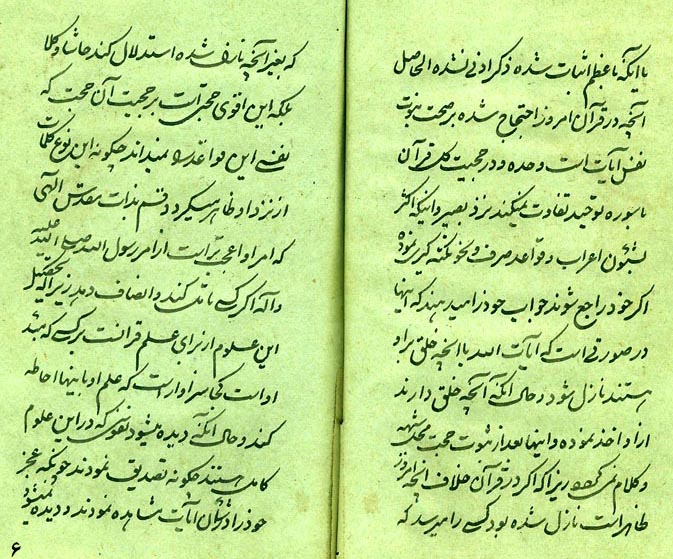 با اینکه باعظم اثبات شده ذکر ادنی نشده الحاصل
آنچه در قرآن امروز احتجاج شده بر صحت نبوت
نفس آیات است وحده و در حجیت کل قرآن
با سوره توحید تفاوت نمیکند نزد بصیر و اینکه اکثر
بشئون اعراب و قواعد صرف و نحو نکته گیری نموده
اگر خود راجع شوند جواب خود را میدهند که اینها
در صورتی است که آیات الله با آنچه خلق بر او
هستند نازل شود و حال آنکه آنچه خلق دارند
از او اخذ نموده و اینها بعد از ثبوت حجت محل شبهه
و کلام نمی‌گردد زیرا که اگر در قرآن خلاف آنچه امروز
ظاهر است نازل شده بود کسی را میرسد که
که بغیر آنچه نازل شده استدلال کند حاشا و کلا
بلکه این اقوی حجتی است بر حجیت آن حجت که
نفسی این قواعد را نمیداند چگونه این نوع کلمات
از نزد او ظاهر میگردد قسم بذات مقدس الهی
که امر او اعجب‌تر است از امر رسول الله صلی الله علیه
و آله اگر کسی تامل کند و انصاف دهد زیرا که تحصیل
این علوم از برای علم قرآنست بر کسی که منبع
او است کجا سزاوار است که علم او باینها احاطه
کند و حال آنکه دیده میشود نفوسی که در این علوم
کامل هستند چگونه تصدیق نمودند چونکه عجز
خود را در شأن آیات مشاهده نمودند و دیده نمیشود
۶